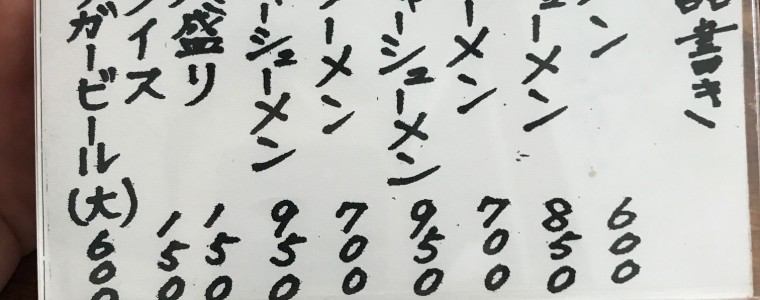 書き
ン 600
ューメン 850
ーメン 700
ーシューメン 950
ーメン 700
ーシューメン 950
盛り 150
イス 150
ガービール(大) 600